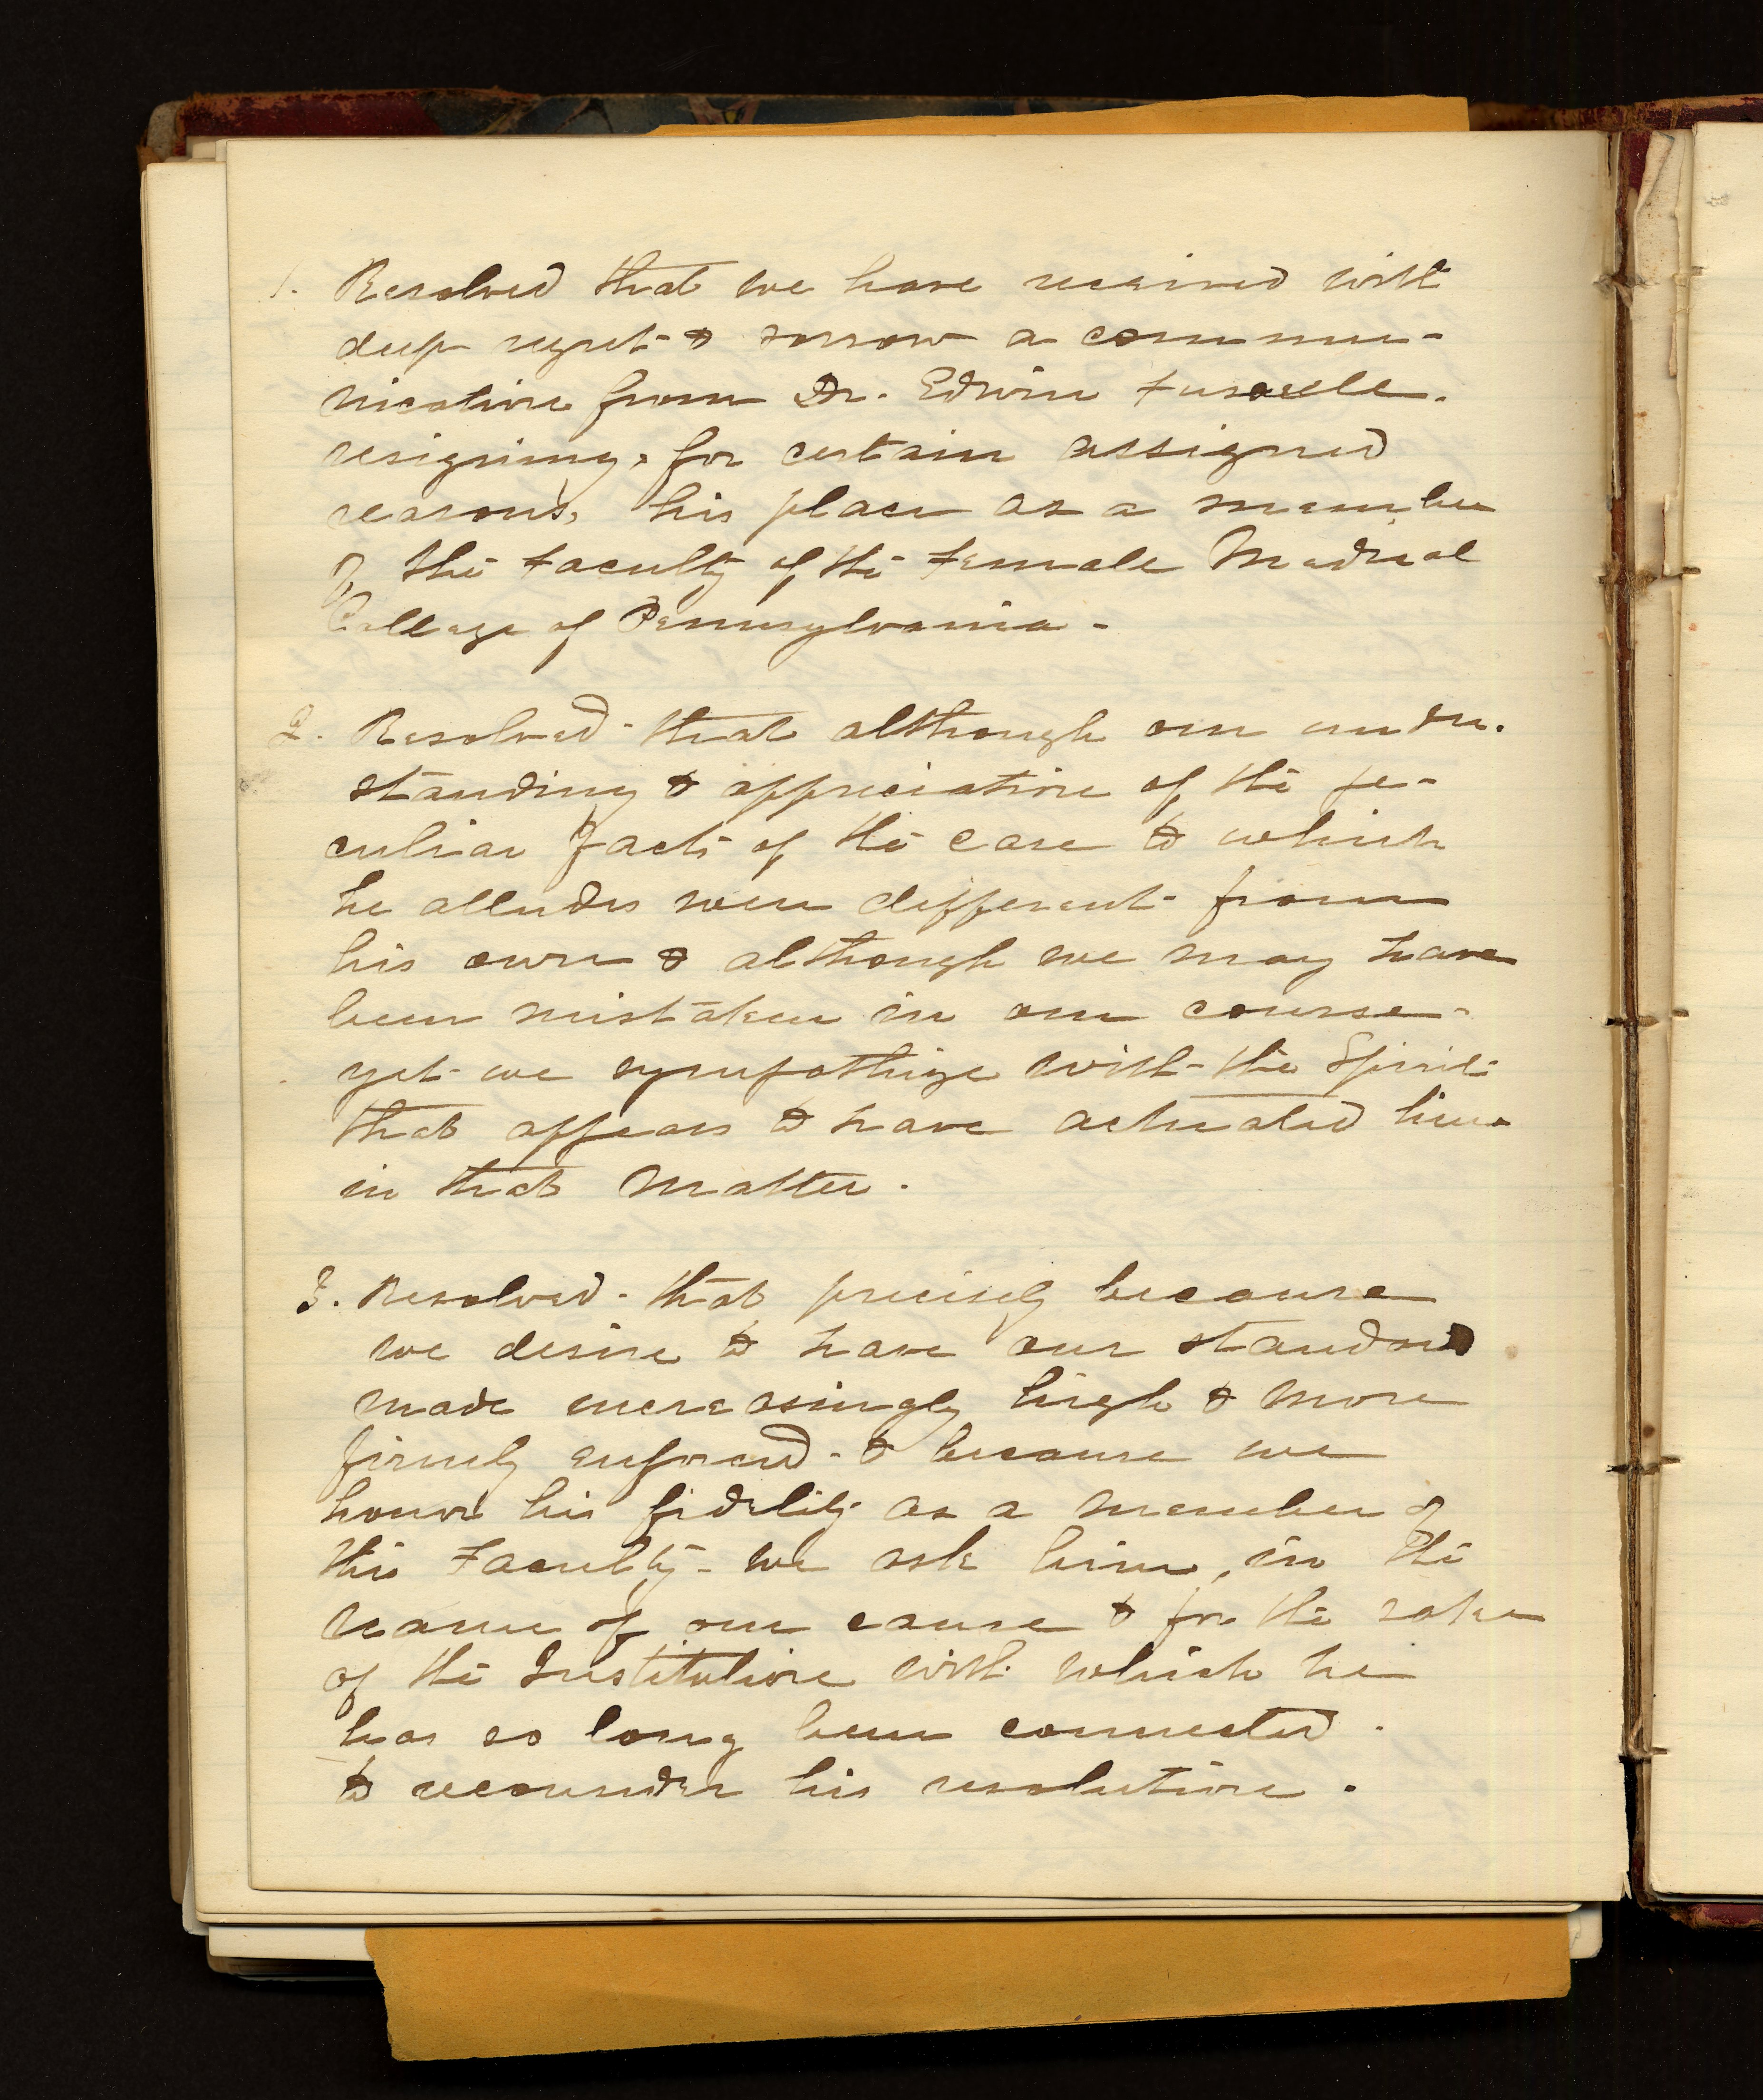 1. Resolved that we have received with
deep regret & sorrow a commu-
nication from Dr. Edwin Fussell.
resigning, for certain assigned
reasons, his place as a member
of the Faculty of the Female Medical
College of Pennsylvania -
2. Resolved - that although our under-
standing & appreciation of the pe-
culiar facts of the case to which
he alludes were different from
his own & although we may have
been mistaken in our course -
yet we sympathize with the Spirit
that appears to have actuated him
in that matter.
3. Resolved - that precisely because
we desire to have our standard
made increasingly high & more
firmly enforced - & because we
honor his fidelity as a member of
this Faculty - we ask him, in the
name of our cause & for the sake
of the Institution with which he
has so long been connected.
to reconsider his resolution.